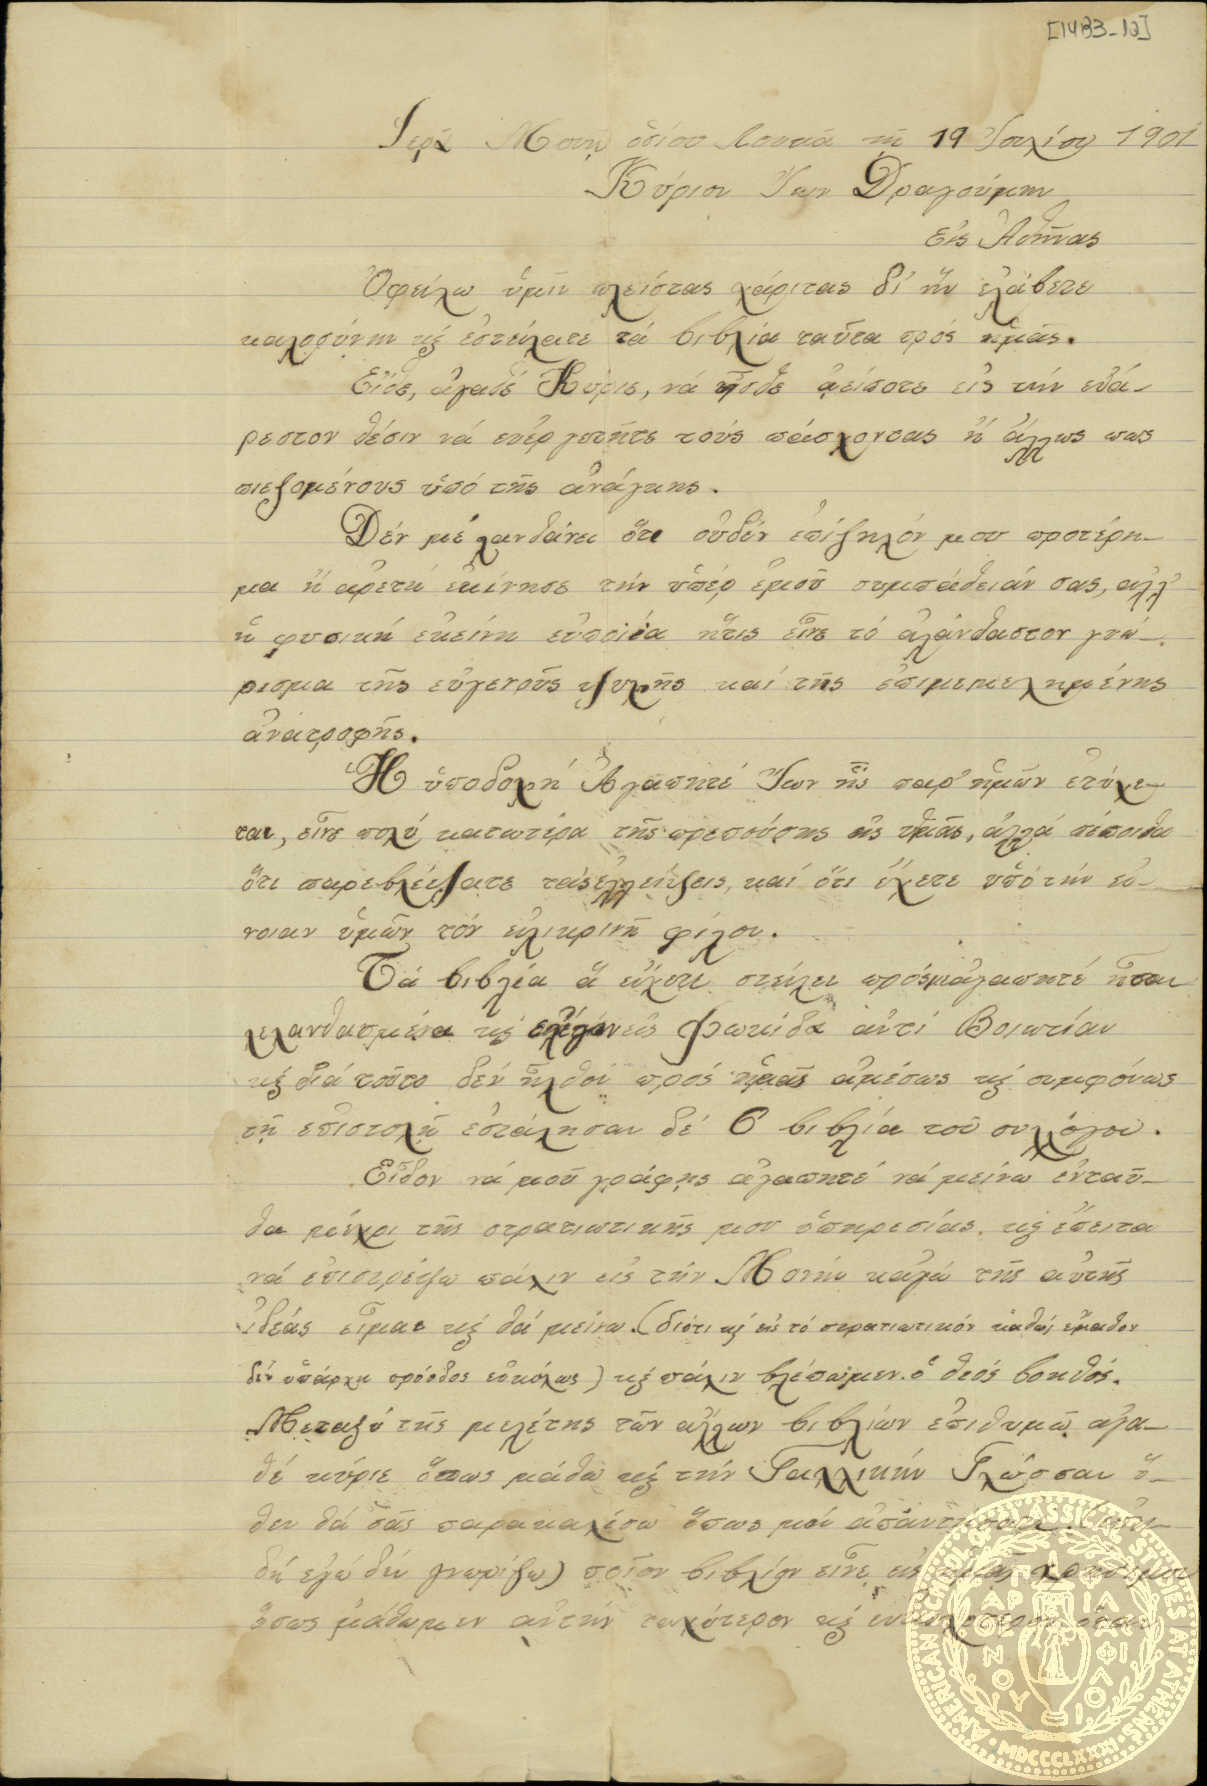 [1433-12]
Ἱερᾷ Μονῇ ὁσίου Λουκᾶ τῇ 19 Ἰουλίου 1901
Κύριον Ἴων Δραγούμην
Εἰς Ἀθήνας
Ὀφείλω ὑμῖν πλείστας χάριτας δι' ἥν ἐλάβετε
καλοσύνην κ ἐστείλατε τά βιβλία ταῦτα πρός ἡμᾶς.
Εἴθε, ἀγαθέ Κύριε, νά ἦσθε ἀείποτε εἰς τήν εὐά-
ρεστον θέσιν νά εὐεργετῆτε τούς πάσχοντας ἤ ἄλλως πως
πιεζομένους ὑπό τῆς ἀνάγκης.
Δέν μέ λανθάνει ὅτι οὐδέν ἐπίζηλόν μου προτέρη-
μα ἤ ἀρετή ἐκίνησε τήν ὑπέρ ἐμοῦ συμπάθειάν σας, ἀλλ'
ἡ φυσική ἐκείνη εὐποιΐα ἥτις εἶνε τό ἀλάνθαστον γνώ-
ρισμα τῆς εὐγενοῦς ψυχῆς καί τῆς ἐπιμεμελημένης
ἀνατροφῆς.
Ἡ ὑποδοχή Ἀγαπητέ Ἴων ἧς παρ' ἡμῶν ἐτύχε-
ται, εἶνε πολύ κατωτέρα τῆς πρεπούσης εἰς ὑμᾶς, ἀλλά πέποιθα
ὅτι παρεβλέψατε τάς ἐλλείψεις, καί ὅτι ἔχετε ὑπό τήν εὔ-
νοιαν ὑμῶν τόν εἰλικρινῆ φίλον.
Τά βιβλία ἅ εἴχετε στείλει πρός μ ἀγαπητέ ἦσαν
λελανθασμένα κ εἰς Φωκίδα ἀντί Βοιωτίαν
κ διά τοῦτο δέν ἦλθον πρός ἡμᾶς ἀμέσως κ συμφώνως
τῇ ἐπιστολῇ ἐστάλησαν δέ 6 βιβλία τοῦ συλλόγου.
Εἶδον νά μοῦ γράφῃς ἀγαπητέ νά μείνω ἐνταῦ-
θα μέχρι τῆς στρατιωτικῆς μου ὑπηρεσίας κ ἔπειτα
νά ἐπιστρέψω πάλιν εἰς τήν Μονήν κἀγώ τῆς αὐτῆς
ἰδέας εἶμαι κ θά μείνω. (διότι κ εἰς τό στρατιωτικόν καθώς ἔμαθον
δέν ὑπάρχει πρόοδος εὐκόλως) κ πάλιν βλέπωμεν. ὁ θεός βοηθός.
Μεταξύ τῆς μελέτης τῶν ἄλλων βιβλίων ἐπιθυμῶ ἀγα-
θέ κύριε ὅπως μάθω κ τήν Γαλλικήν Γλώσσαν ὅ-
θεν θά σᾶς παρακαλέσω ὅπως μοί ἀπαντήσητε. (ἐπει-
δή ἐγώ δέν γνωρίζω) ποῖον βιβλίον εἶνε εἰς ἡμᾶς χρήσιμον
ὅπως μάθωμεν αὐτήν ταχύτερον κ
AMERICAN SCHOOL OF CLASSICAL STUDIES AT ATHENS
MDCCCLXXXI
ΠΑΡΘΕΝΟΥ ΦΙΛΟΙ